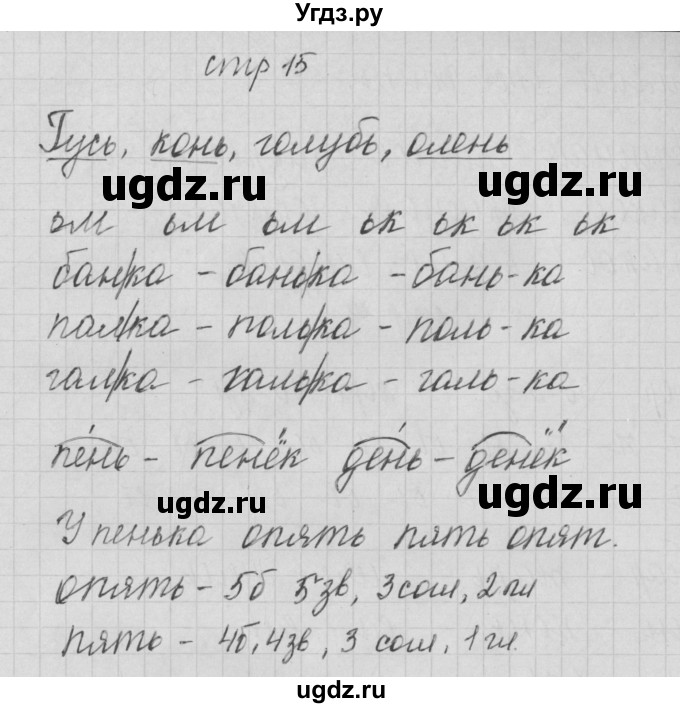 Угдз.ру
стр 15
Гусь, конь, голубь, олень
ugdz.ru ugdz.ru
ьм ьм ьм ьк ьк ьк ьк
бан/ка - бань/ка - бань-ка
пал/ка - поль/ка - поль-ка
гал/ка - галь/ка - галь-ка
пéнь - пенёк дéнь - денёк
ugdz.ru ugdz.ru
У пенька опять пять опят.
опять - 5б 5зв, 3сом, 2гл
пять - 4б, 4зв, 3 сом, 1гл.
ugdz.ru
ugdz.ru